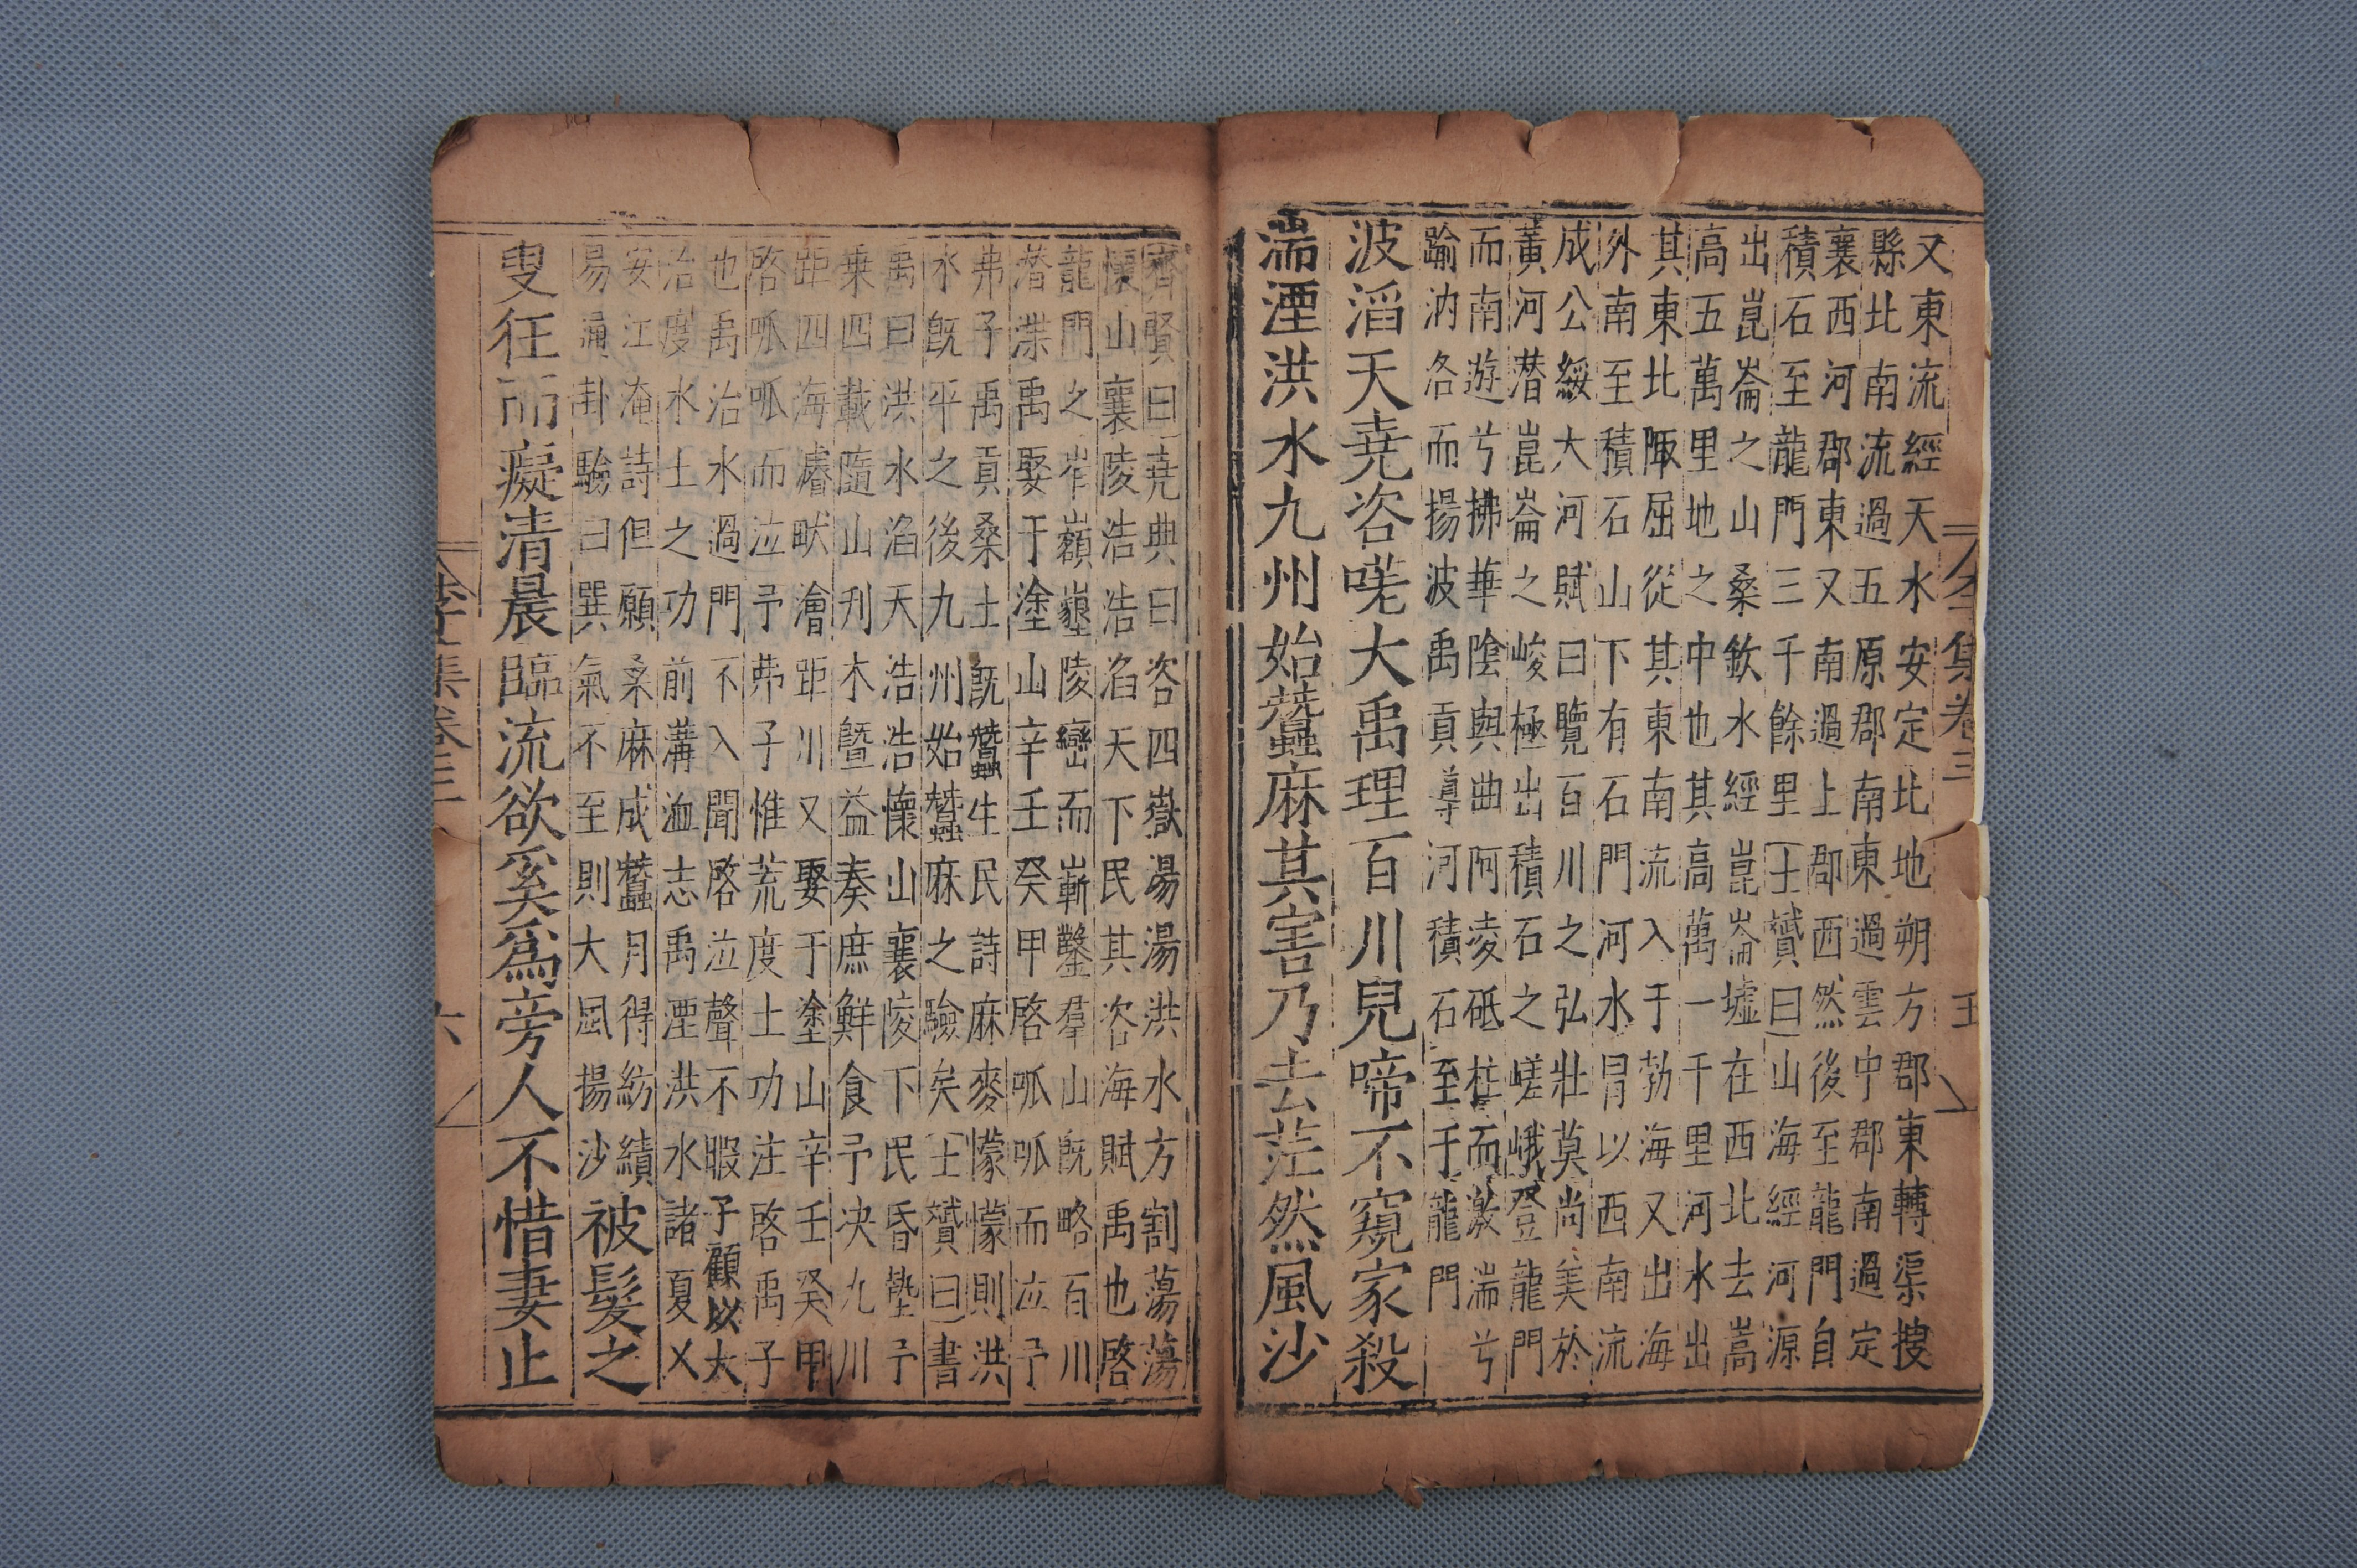 又東流經天水安定北地朔方郡東轉渠搜
縣北南流過五原郡南東過雲中郡南過定
襄西河郡東又南過上郡西然後至龍門自
積石至龍門三千餘里士贇曰山海經河源
出崑崙之山桑欽水經崑崙墟在西北去嵩
高五萬里地之中也其高萬一千里河水出
其東北陬屈從其東南流入于勃海又出海
外南至積石山下有石門河水冐以西南流
成公綏大河賦曰覽百川之弘壯莫尚美於
黃河潛崑崙之峻極出積石之嵯峨登龍門
而南遊兮拂華隂與曲阿凌砥柱而激湍兮
踰汭洛而揚波禹貢導河積石至于龍門
波滔天堯咨嗟大禹理百川兒啼不窺家殺
湍湮洪水九州始蠶麻其害乃去茫然風沙
全集卷三
五
齊賢曰堯典曰咨四嶽湯湯洪水方割蕩蕩
懷山襄陵浩浩滔天下民其咨海賦禹也啓
龍門之岝嶺墾陵巒而嶄鑿羣山旣略百川
潛渫禹娶于塗山辛壬癸甲啓呱呱而泣予
弗子禹貢桑土旣蠶生民詩麻麥懞懞則洪
水旣平之後九州始蠶麻之驗矣士贇曰書
禹曰洪水滔天浩浩懷山襄陵下民昏墊予
乗四載隨山刋木曁益奏庶鮮食予决九川
距四海濬畎澮距川又娶于塗山辛壬癸甲
啓呱呱而泣予弗子惟荒度土功注啓禹子
也禹治水過門不入聞啓泣聲不暇子顧以大
治度水土之功前溝洫志禹湮洪水諸夏乂
安江淹詩但願桑麻成蠶月得紡績
易通卦驗曰巽氣不至則大風揚沙
被髮之
叟狂而癡清晨臨流欲奚爲旁人不惜妻止
集卷三
六